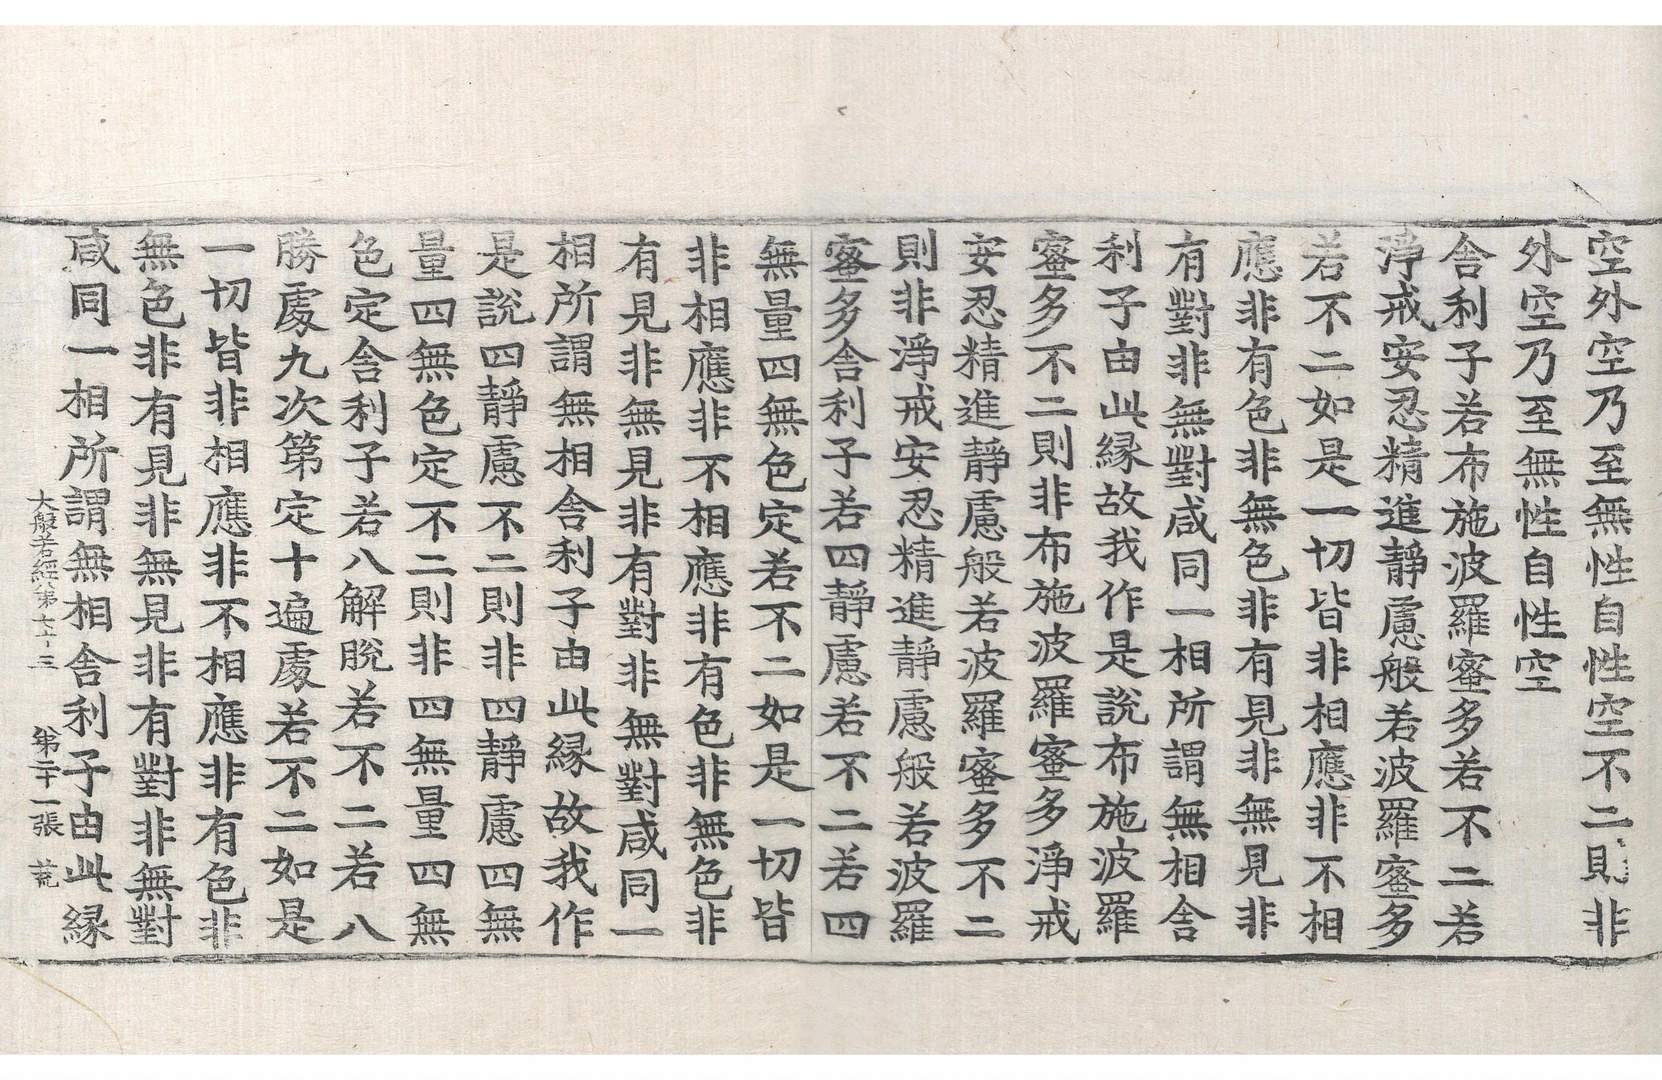 空外空乃至無性自性空不二則非
外空乃至無性自性空
舎利子若布施波羅蜜多若不二若
淨戒安忍精進靜慮般若波羅蜜多
若不二如是一切皆非相應非不相
應非有色非無色非有見非無見非
有對非無對咸同一相所謂無相舎
利子由此縁故我作是說布施波羅
蜜多不二則非布施波羅蜜多淨戒
安忍精進靜慮般若波羅蜜多不二
則非淨戒安忍精進靜慮般若波羅
蜜多舎利子若四靜慮若不二若四
無量四無色定若不二如是一切皆
非相應非不相應非有色非無色非
有見非無見非有對非無對咸同一
相所謂無相舎利子由此縁故我作
是說四靜慮不二則非四靜慮四無
量四無色定不二則非四無量四無
色定舎利子若八解脫若不二若八
勝處九次第定十遍處若不二如是
一切皆非相應非不相應非有色非
無色非有見非無見非有對非無對
咸同一相所謂無相舎利子由此縁
大般若經第六十三　第二十一張　荒